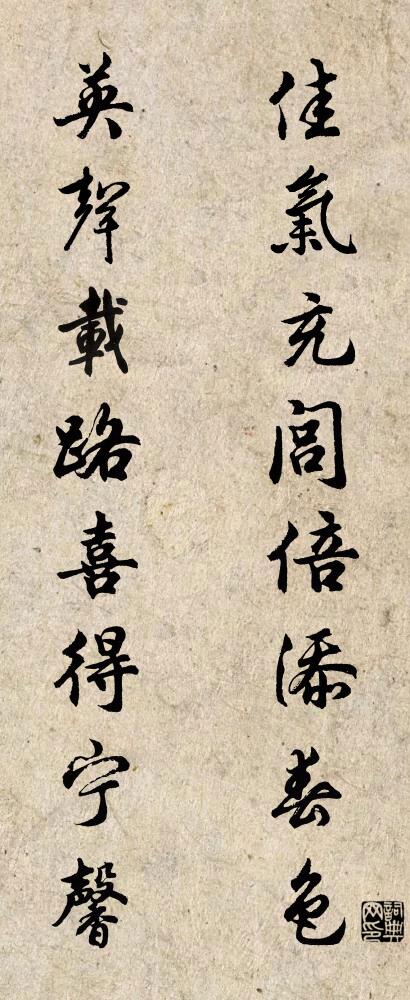 佳氣充閭倍添春色
英聲載路喜得宁馨
詞典網印